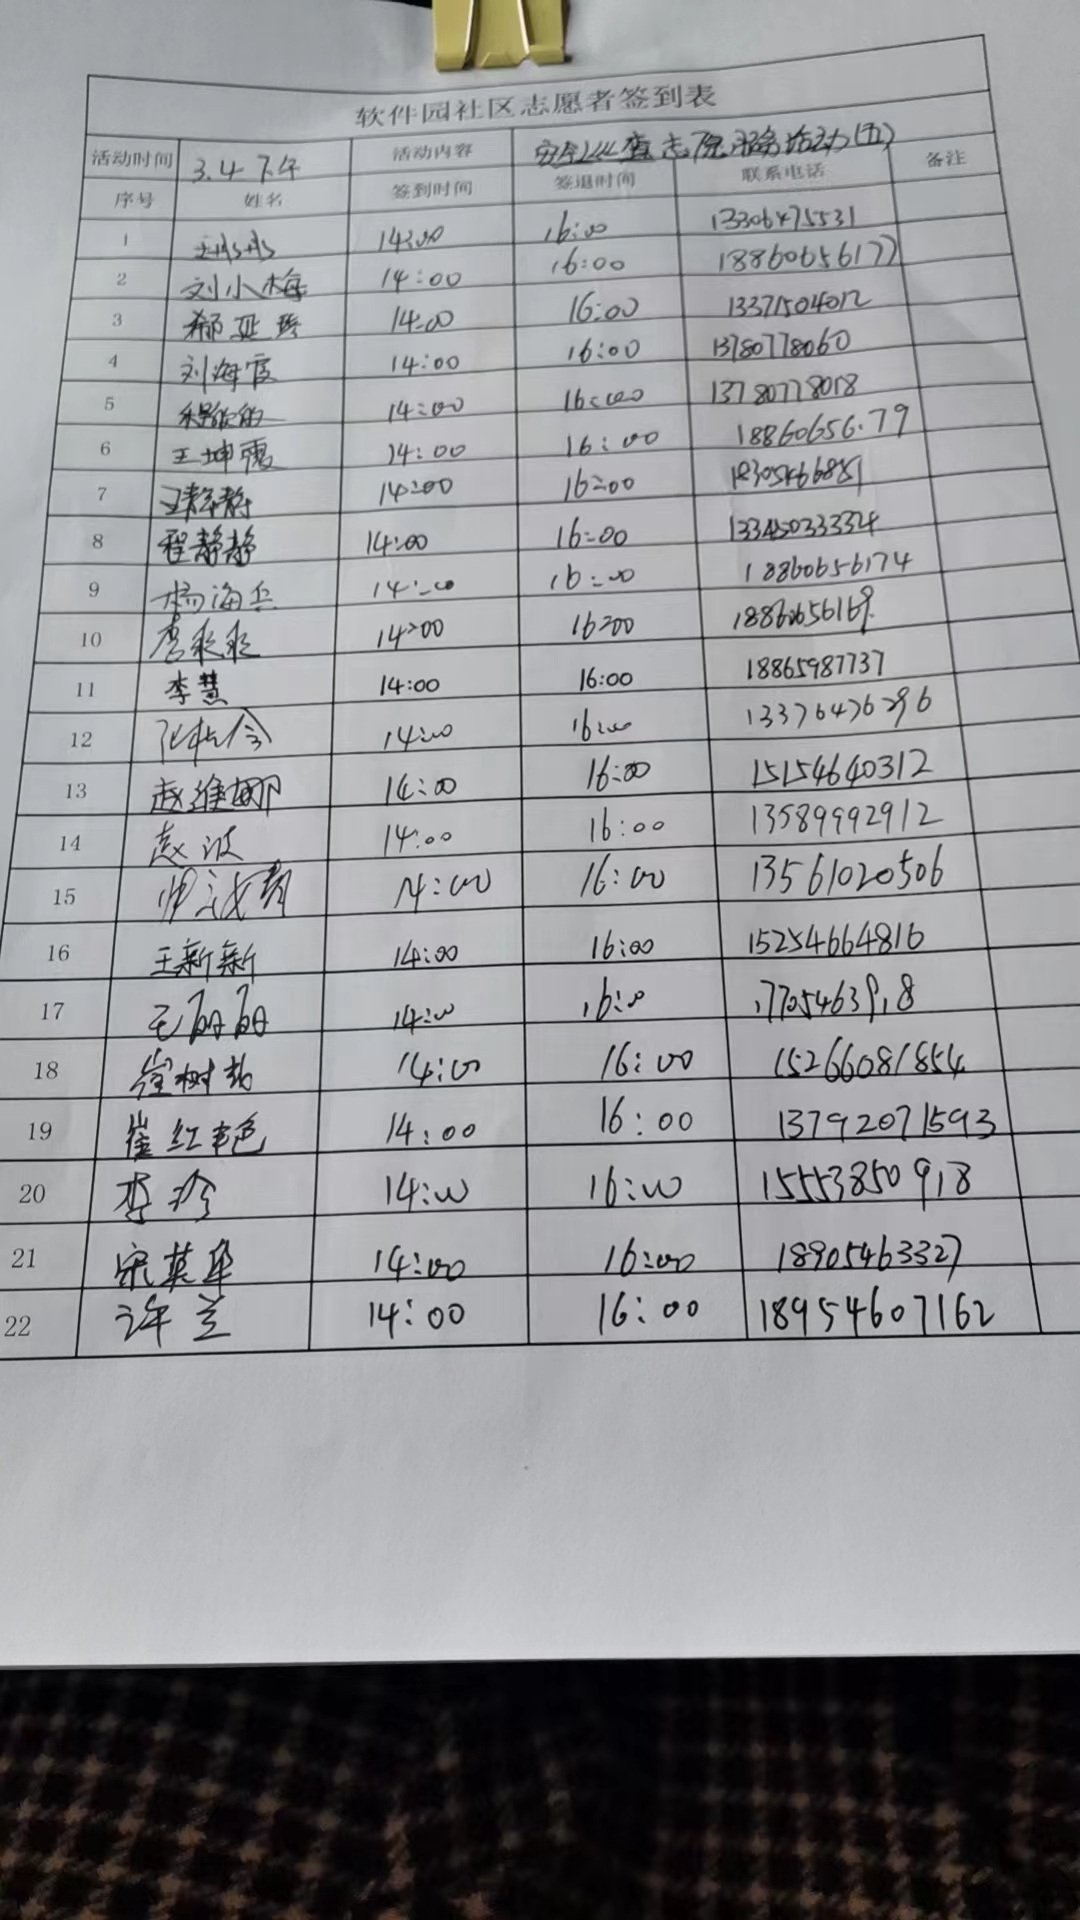 软件园社区志愿者签到表
活动时间 3.4 下午 活动内容 查志愿服务活动(五)
序号 姓名 签到时间 签退时间 联系电话 备注
1 14:00 16:00 13306475531
2 刘小梅 14:00 16:00 18860656177
3 14:00 16:00 13371504012
4 刘海霞 14:00 16:00 13780778060
5 14:00 16:00 13780778018
6 王坤霞 14:00 16:00 18860656179
7 王静静 14:00 16:00 18305466851
8 程静静 14:00 16:00 13345033334
9 杨海兵 14:00 16:00 18860656174
10 李彩彩 14:00 16:00 18860656169
11 李慧 14:00 16:00 18865987737
12 14:00 16:00 13376476296
13 赵维娜 14:00 16:00 15154640312
14 赵波 14:00 16:00 13589992912
15 14:00 16:00 13561020506
16 王新新 14:00 16:00 15254664816
17 王丽丽 14:00 16:00 17705463918
18 崔树 14:00 16:00 15266081854
19 崔红艳 14:00 16:00 13792071593
20 李玲 14:00 16:00 15553850918
21 宋英华 14:00 16:00 18905463327
22 许兰 14:00 16:00 18954607162